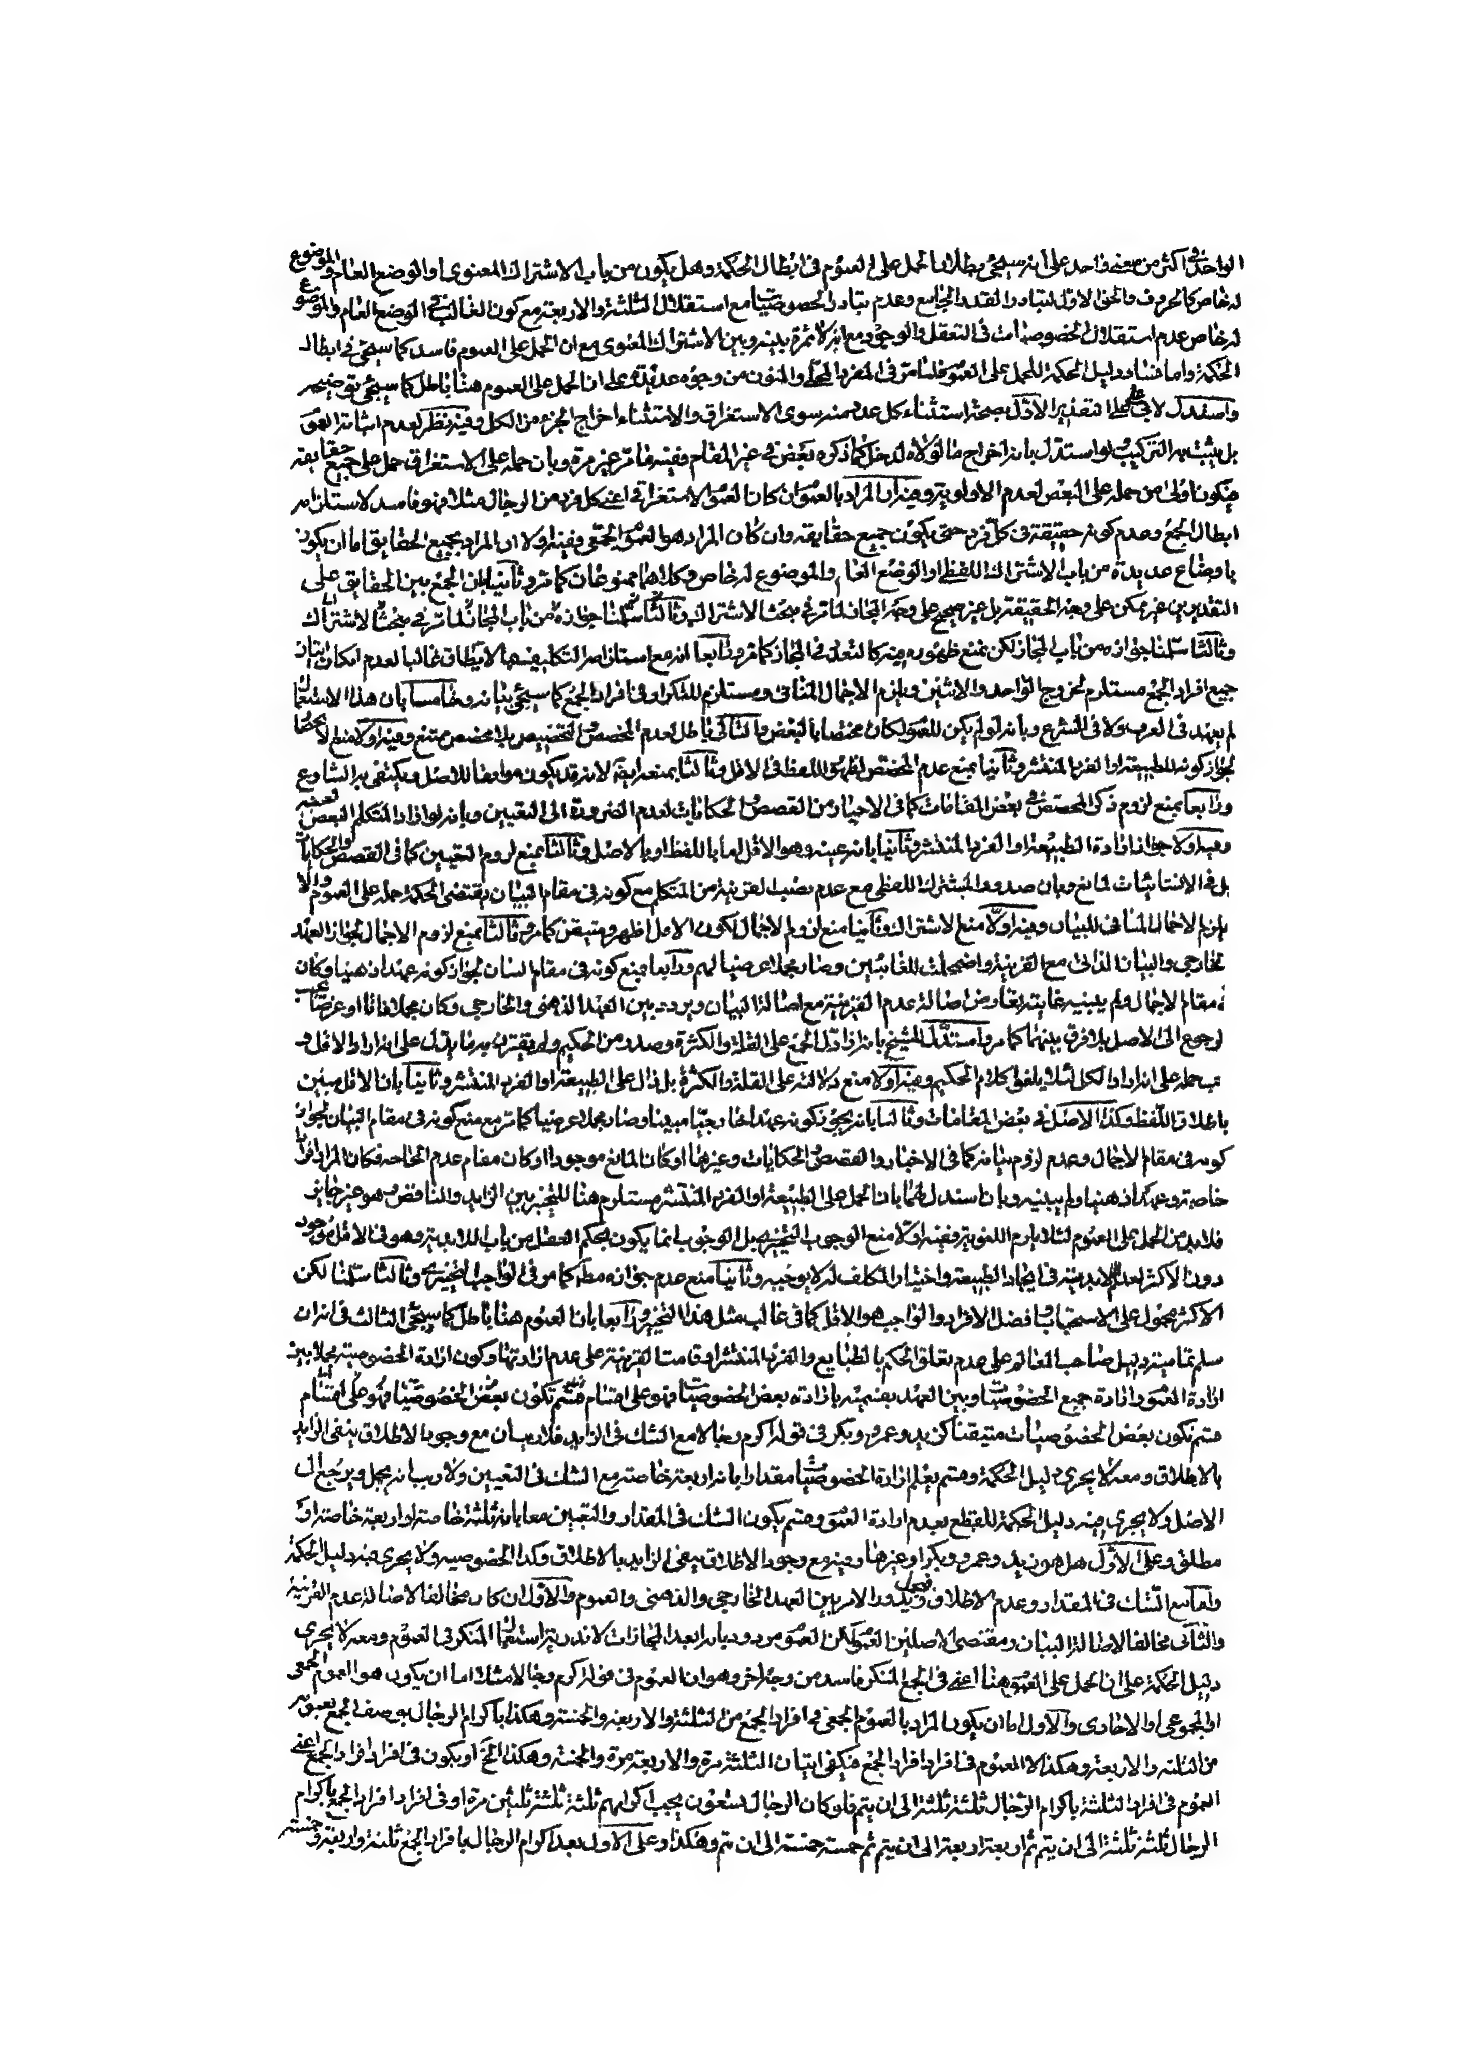 الواحد فى اكثر من معنى واحد على انه سيجئ بطلان الحمل على العموم فى ابطال الحكمة وهل يكون من باب الاشتراك المعنوى او الوضع العام والموضوع
له خاص كالحروف والحق الاول لتبادر القدر الجامع وعدم تبادر الخصوصيات مع استقلال الثلثة والاربعة مع كون الغالب فى الوضع العام والموضوع
له خاص عدم استقلال الخصوصيات فى التعقل والوجود مع انه لا ثمرة بينه وبين الاشتراك المعنوى مع ان الحمل على العموم فاسد كما سيجئ فى ابطال
الحكمة واما فساد دليل الحكمة للحمل على العموم فلما مر فى المفرد المحلى والمنون من وجوه عديدة على ان الحمل على العموم هنا باطل كما سيجئ توضيحه
واستدل لابى على التقدير الاول بصحة استثناء كل عدد منه سوى الاستغراق والاستثناء اخراج الجزء من الكل وفيه نظر لعدم اثباته العموم
بل يثبت به التركيب لو استدل بانه اخراج ما لولاه لدخل كما ذكره بعض فى غير المقام ففيه ما مر غير مرة وبان حمله على الاستغراق حمل على جميع حقايقه
فيكون اولى من حمله على البعض لعدم الاولوية وفيه ان المراد بالعموم ان كان العموم الاستغراقى اعنى كل فرد من الرجال مثلا فهو فاسد لاستلزامه
ابطال الجمع وعدم كونه حقيقة فى كل فرد حتى يكون جميع حقايقه وان كان المراد هو العموم الجمعى ففيه اولا ان المراد بجميع الحقايق اما ان يكون
باوضاع عديدة من باب الاشتراك اللفظى او الوضع العام والموضوع له خاص وكلاهما ممنوعان كما مر وثانيا بان الجمع بين الحقايق على
التقديرين غير ممكن على وجه الحقيقة بل غير صحيح على وجه المجاز لما مر فى مبحث الاشتراك وثالثا سلمنا جوازه من باب المجاز لما مر فى مبحث الاشتراك
وثالثا سلمنا جوازه من باب المجاز لكن نمنع ظهوره فيه كالتعدد فى المجاز كما مر ورابعا انه مع استلزامه التكليف بما لا يطاق غالبا لعدم امكان اتيان
جميع افراد الجمع مستلزم لخروج الواحد والاثنين ويلزم الاجمال المنافى ومستلزم للتكرار فى افراد الجمع كما سيجئ بيانه وخامسا بان هذا الاستعمال
لم يعهد فى العرف ولا فى الشرع وبانه لو لم يكن للعموم لكان مختصا بالبعض والتالى باطل لعدم المخصص والتخصيص بلا مخصص ممتنع وفيه اولا منع الانحصار
لجواز كونه للطبيعة او الفرد المنتشر وثانيا بمنع عدم المخصص لظهور اللفظ فى الاقل وثالثا بمنعه ايضا لانه قد يكون موافقا للاصل ويكتفى به الشارع
ورابعا بمنع لزوم ذكر المخصص فى بعض المقامات كما فى الاخبار من القصص والحكايات لعدم الضرورة الى التعيين وبانه لو اراد المتكلم البعض لعينه
وفيه اولا جواز ارادة الطبيعة او الفرد المنتشر وثانيا بانه عينه وهو الاقل اما باللفظ او بالاصل وثالثا بمنع لزوم التعيين كما فى القصص والحكايات
بل فى الانشائيات لمانع وبان صدور المشترك اللفظى مع عدم نصب القرينة من المتكلم مع كونه فى مقام البيان يقتضى الحكمة حمله على العموم والا
يلزم الاجمال المنافى للبيان وفيه اولا منع الاشتراك وثانيا منع لزوم الاجمال لكون الاقل اظهر ومتيقن كما مر وثالثا بمنع لزوم الاجمال لجواز العهد
الخارجى والبيان الذاتى مع القرينة واضمحلت للغائبين وصار مجملا عرضيا لهم ورابعا بمنع كونه فى مقام البيان لجواز كونه عهدا ذهنيا وكان
فى مقام الاجمال ولم يبينه غايته تعارض اصالة عدم القرينة مع اصالة البيان ويردد بين العهد الذهنى والخارجى وكان مجملا ذاتا او عرضا فيجب
الرجوع الى الاصل بلا فرق بينهما كما مر واستدل الشيخ بانه اذا دل الجمع على القلة والكثرة وصدر من الحكيم ولم يقترن به ما يدل على انه اراد الاقل و
جب حمله على انه اراد الكل لئلا يلغو كلام الحكيم وفيه اولا منع دلالته على القلة والكثرة بل دال على الطبيعة او الفرد المنتشر وثانيا بان الاقل مبين
باطلاق اللفظ وكذا الاصل فى بعض المقامات وثالثا بانه يجوز كونه عهدا خارجيا مبينا وصار مجملا عرضيا كما مر مع منع كونه فى مقام البيان لجواز
كونه فى مقام الاجمال وعدم لزوم بيانه كما فى الاخبار والقصص والحكايات وغيرهما او كان المانع موجودا او كان مقام عدم الحاجة فكان المراد افرادا
خاصة وعهدا ذهنيا ولم يبينه وبان استدل لهما بان الحمل على الطبيعة او الفرد المنتشر مستلزم هنا للتخيير بين الزايد والناقص وهو غير جايز
فلا بد من الحمل على العموم لئلا يلزم اللغوية وفيه اولا منع الوجوب التخييرى بل الوجوب انما يكون بحكم العقل من باب اللابدية وهو فى الاقل موجود
دون الاكثر لعدم اللابدية فى ايجاد الطبيعة واختيار المكلف له لا يوجبه وثانيا منع عدم جوازه مطلقا كما مر فى الواجب التخييرى وثالثا سلمنا لكن
الاكثر محمول على الاستحباب وافضل الافراد والواجب هو الاقل كما فى غالب مثل هذا التخيير ورابعا بان العموم هنا باطل كما سيجئ الثالث فى انه ان
سلم تمامية دليل صاحب المعالم على عدم تعلق الحكم بالطبايع والفرد المنتشر او قامت القرينة على عدم ارادتها وكون ارادة الخصوصية مجملا بين
ارادة العموم وارادة جميع الخصوصيات وبين العهد بقسميه بارادة بعض الخصوصيات فهو على اقسام
قسم تكون بعض الخصوصيات متيقنا كزيد وعمرو وبكر فى قوله اكرم رجالا مع الشك فى الزايد فلا ريب ان مع وجوب الاطلاق ينفى الزايد
بالاطلاق ومعه لا يجرى دليل الحكمة وقسم يعلم ارادة الخصوصيات مقدارا بانه اربعة خاصة مع الشك فى التعيين ولا ريب انه مجمل ويرجع الى
الاصل ولا يجرى فيه دليل الحكمة للقطع بعدم ارادة العموم وقسم يكون الشك فى المقدار والتعيين معا بانه ثلثة خاصة او اربعة خاصة او
مطلق وعلى الاول هل هو زيد وعمرو وبكر او غيرها وفيه مع وجود الاطلاق ينفى الزايد بالاطلاق وكذا الخصوصية ولا يجرى فيه دليل الحكمة
واما مع الشك فى المقدار وعدم الاطلاق فيدور الامر بين العهد الخارجى والذهنى والعموم والاول ان كان مخالفا لاصالة عدم القرينة
والثانى مخالفا لاصالة البيان ومقتضى الاصلين العموم لكن العموم مردود بانه ابعد المجازات لاندرية استعمال المنكر فى العموم ومعه لا يجرى
دليل الحكمة على ان الحمل على العموم هنا اعنى فى الجمع المنكر فاسد من وجه اخر وهو ان العموم فى قوله اكرم رجالا مثلا اما ان يكون هو العموم الجمعى
او المجموعى او الاحادى والاول اما ان يكون المراد بالعموم الجمعى فى افراد الجمع من الثلثة والاربعة والخمسة وهكذا باكرام الرجال بوصف الجمع بعمومه
من الثلثة والاربعة وهكذا لا العموم فى افراد افراد الجمع فيكفى اتيان الثلثة مرة والاربعة مرة والخمسة وهكذا الخ او يكون فى افراد افراد الجمع اعنى
العموم فى افراد الثلثة باكرام الرجال ثلثة ثلثة الى ان يتم فلو كان الرجال تسعون يجب اكرامهم ثلثة ثلثة ثلثين مرة او فى افراد افراد الجمع باكرام
الرجال ثلثة ثلثة الى ان يتم ثم اربعة اربعة الى ان يتم ثم خمسة خمسة الى ان تم وهكذا وعلى الاول بعد اكرام الرجال بافراد الجمع ثلثة واربعة وخمسة